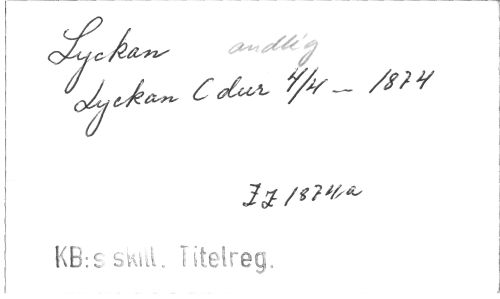 Lyckan andlig
Lyckan C dur 4/4 — 1874
JJ 1874,a
KB:s skill. Titelreg.